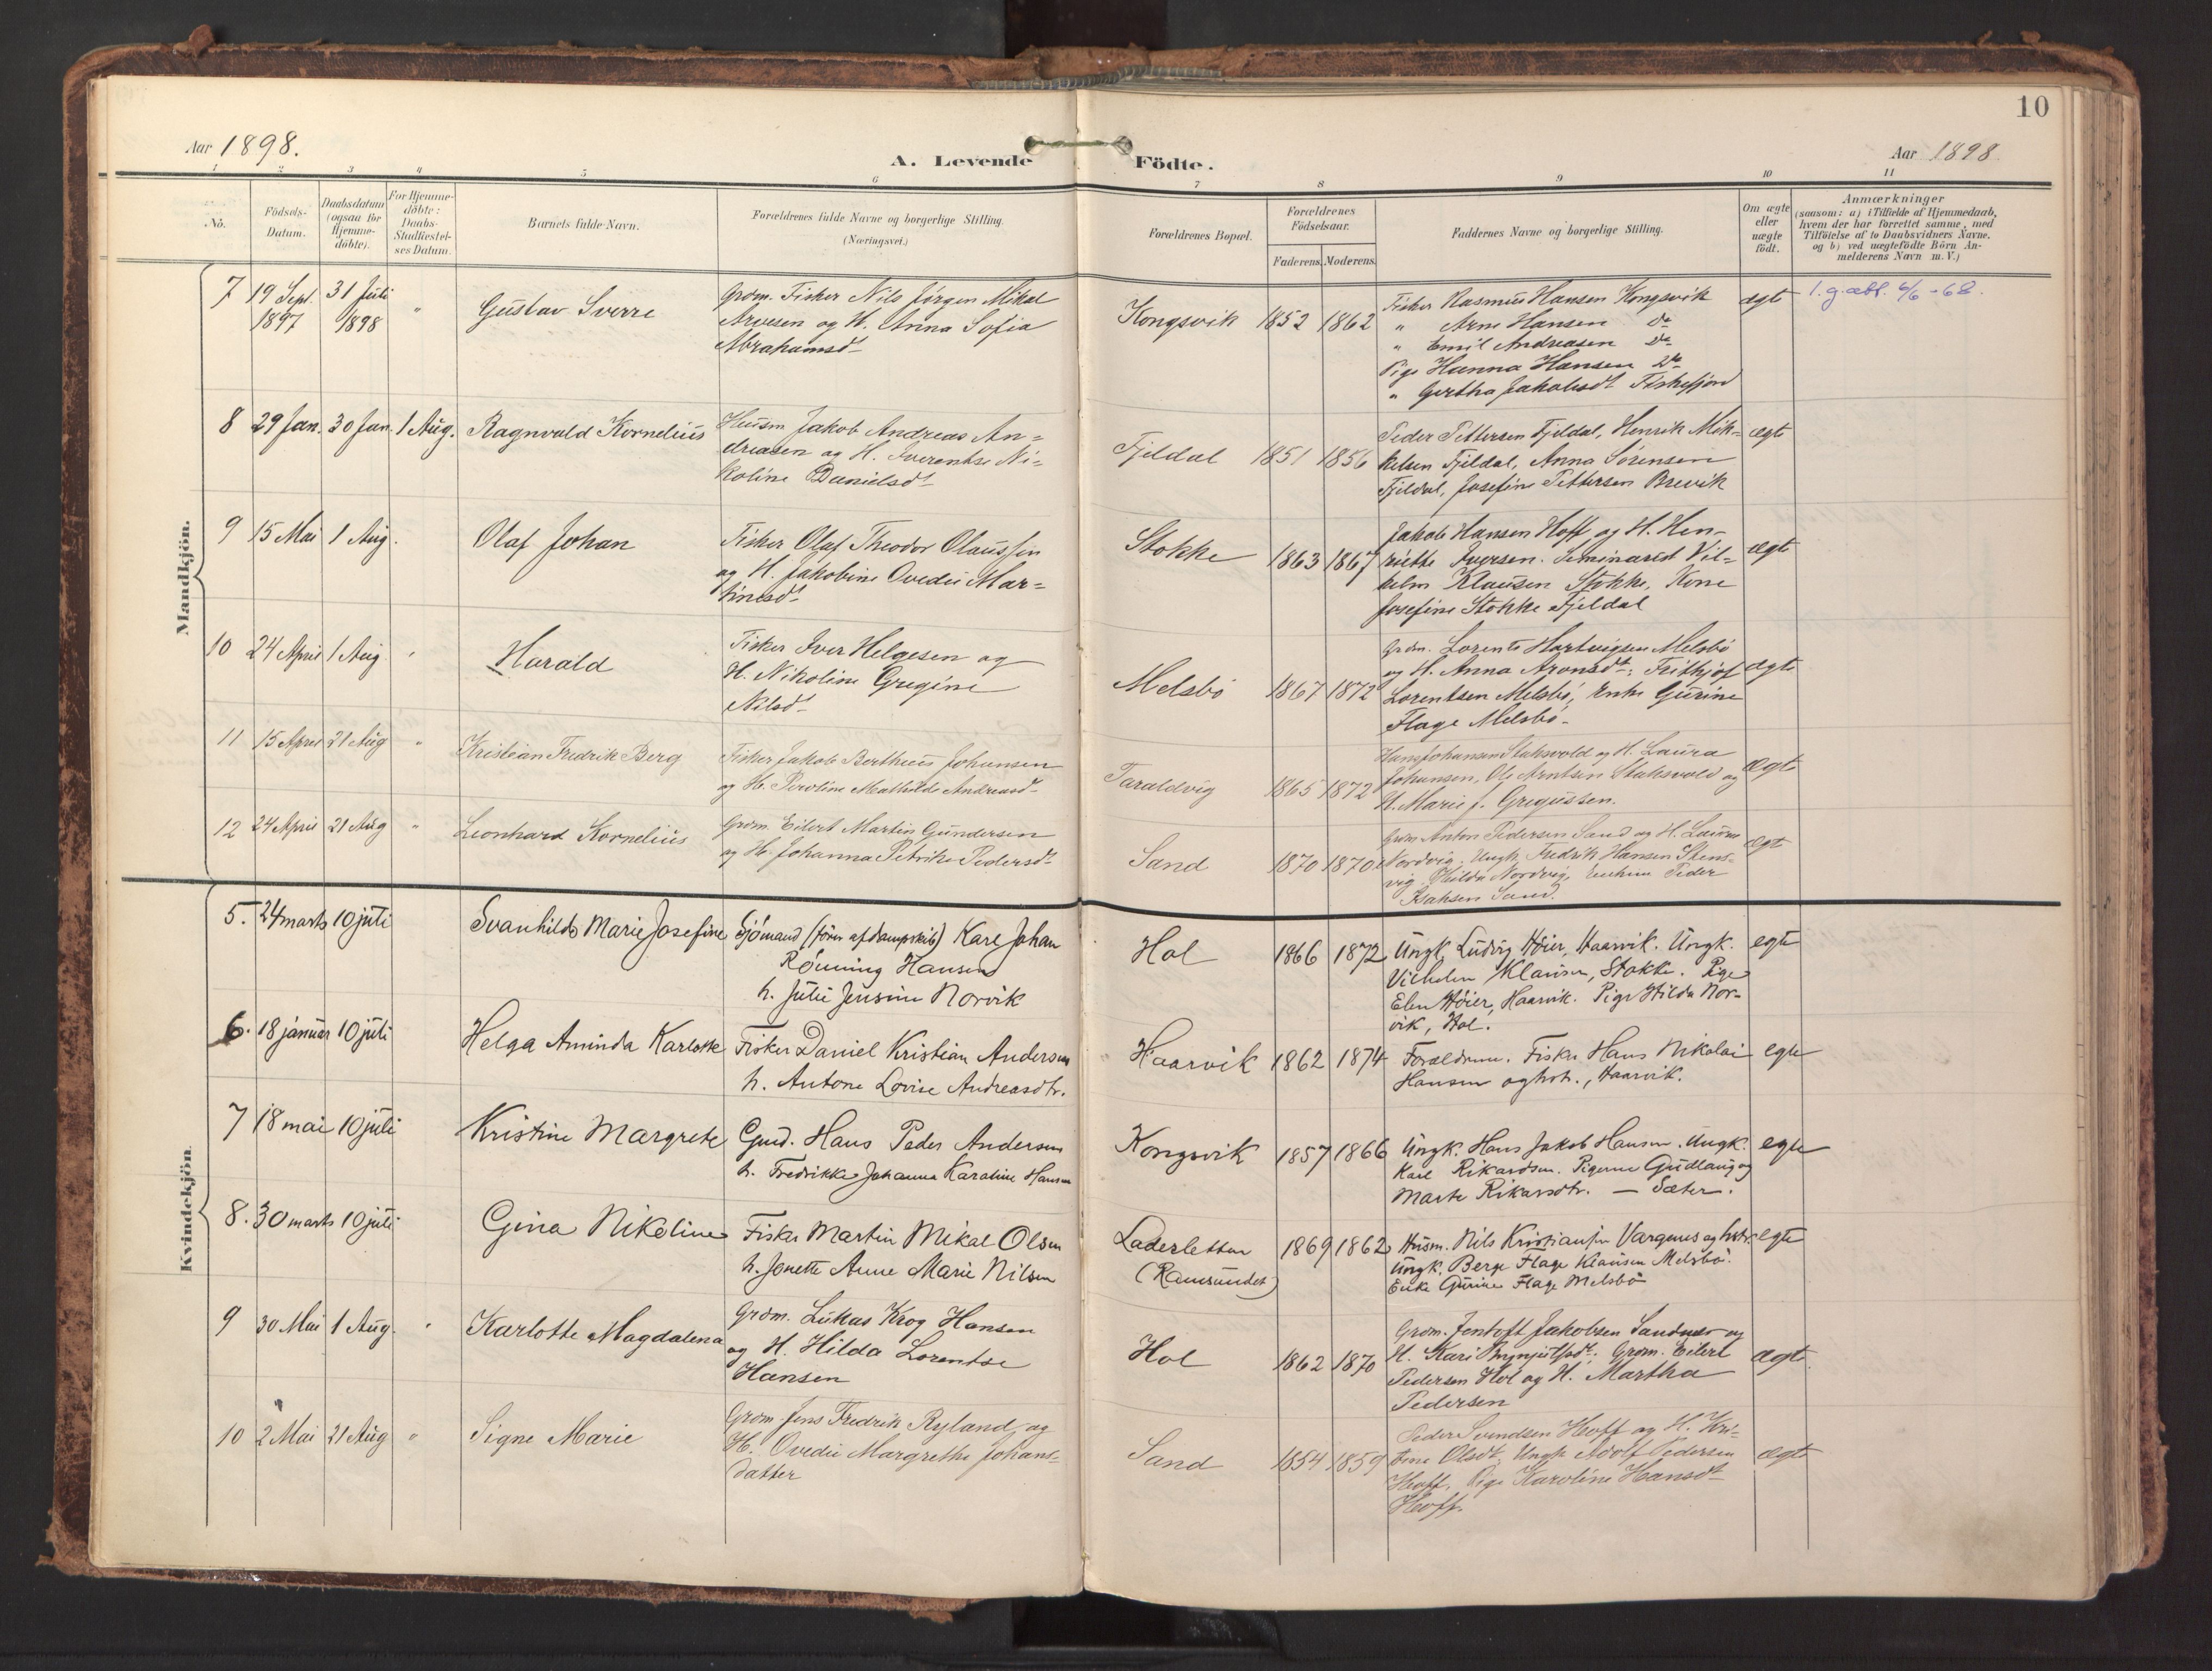 10
Aar 1898.
A. Levende Födte.
Aar 1898.
1 2 3 4 5 6 7 8 9 10 11
No.
Födsels-Datum.
Daabsdatum (ogsaa for Hjemmedöbte).
For Hjemmedöbte: Daabs-Stadfæstelses Datum.
Barnets fulde Navn.
Forældrenes fulde Navne og borgerlige Stilling. (Næringsvei.)
Forældrenes Bopæl.
Forældrenes Födselsaar.
Faderens. Moderens.
Faddernes Navne og borgerlige Stilling.
Om ægte eller uægte födt.
Anmærkninger
(saasom: a) i Tilfælde af Hjemmedaab, hvem der har forrettet samme, med Tilföielse af to Daabsvidners Navne, og b) ved uægtefödte Börn Anmelderens Navn m. V.)
Mandkjön.
7 19 Sept. 1897 31 Juli 1898 " Gustav Sverre
Grdm. Fisker Nils Jörgen Mikal
Arvesen og H. Anna Sofia
Abrahamsdt
Kongsvik 1852 1862
Fisker Rasmus Hansen Kongsvik
" Arne Hansen do
" Emil Andreasen do
Pige Hanna Hansen do
" Gertha Jakobsdt Fiskefjord
ægte
1.g.att. 6/6-68.
8 29 Jan. 30 Jan. 1 Aug. Ragnvald Kornelius
Husm Jakob Andreas An=
dreasen og H. Iverentse Ni=
koline Danielsdt
Fjeldal 1851 1856
Peder Pettersen Fjeldal, Henrik Mik=
kelsen Fjeldal, Anna Sörensen
Fjeldal, Josefine Pettersen Brevik
ægte
9 15 Mai 1 Aug. Olaf Johan
Fisker Olaf Theodor Olaussen
og H. Jakobine Ovedie Mar=
tinesdt
Stokke 1863 1867
Jakob Hansen Hoff og H. Hen=
riette Iversen. Seminarist Vil=
helm Klausen Stokke, Kone
Josefine Stokke Fjeldal
ægte
10 24 April 1 Aug. " Harald
Fisker Iver Helgesen og
H. Nikoline Gregine
Nilsdt
Melsbö 1867 1872
Grdm. Lorents Hartvigsen Melsbö
og H. Anna Aronsdt; Frithjof
Lorentsen Melsbö, Enke Gurine
Flage Melsbö
ægte
11 15 April 21 Aug " Kristian Fredrik Berg
Fisker Jakob Bertheus Johansen
og H. Peroline Mathilde Andreasdt
Taraldvig 1865 1872
Hans Johansen Staksvold og H. Laura
Johansen, Ole Arntsen Staksvold og
H. Marie J. Gregussen.
Ægte
12 24 April 21 Aug " Leonhard Kornelius
Grdm. Eilert Martin Gundersen
og H. Johanna Petrikke Pedersdt
Sand 1870 1870
Grdm Anton Pedersen Sand og H. Laura
Nordvig. Ungk. Fredrik Hansen Stens=
vig Hilda Nordvig, Enkem Peder
Isaksen Sand.
ægte
Kvindekjön.
5. 24 marts 10 juli Svanhild Marie Josefine
Sjömand (förer af dampskib) Karl Johan
Rönning Hansen
h. Julie Jensine Norvik
Hol 1866 1872
Ungk. Ludvig Höier, Haarvik. Ungk.
Vilhelm Klausen, Stokke. Pige
Elen Höier, Haarvik. Pige Hilda Nor=
vik, Hol.
egte
6. 18 januar 10 juli Helga Aminda Karlotte
Fisker Daniel Kristian Andersen
h. Antone Lovise Andreasdtr.
Haarvik 1862 1874
Forældrene. Fisker Hans Nikolai
Hansen og hstr., Haarvik.
egte
7 18 mai 10 juli Kristine Margrete
Gmd. Hans Peder Andersen
h. Fredrikke Johanna Karoline Hansen
Kongsvik 1857 1866
Ungk. Hans Jakob Hansen. Ungk.
Karl Rikardsen. Pigerne Gudlaug og
Marte Rikarsdtr. — Sæter.
egte
8. 30 marts 10 juli Gina Nikoline
Fisker Martin Mikal Olsen
h. Jonette Anne Marie Nilsen
(Ramsundet) 1869 1862
Husm. Nils Kristiansen Vargenes og hstr.
Ungk. Berge Flage Klausen Melsbö.
Enke Gurine Flage Melsbö
egte
9 30 Mai 1 Aug. " Karlotte Magdalena
Grdm. Lukas Krog Hansen
og H. Hilda Lorentse
Hansen
Hol 1862 1870
Grdm. Jentoft Jakobsen Sandnes og
H. Kari; Grdm. Eilert
Pedersen Hol og H. Martha
Pedersen
ægte
10 2 Mai 21 Aug " Signe Marie
Grdm. Jens Fredrik Ryland og
H. Ovedie Margrethe Johans=
datter
Sand 1854 1859
Peder Svendsen Hoff og H. Kri=
stine Olsdt, Ungk Adolf Pedersen
Hoff, Pige Karoline Hansdt
Hoff.
ægte